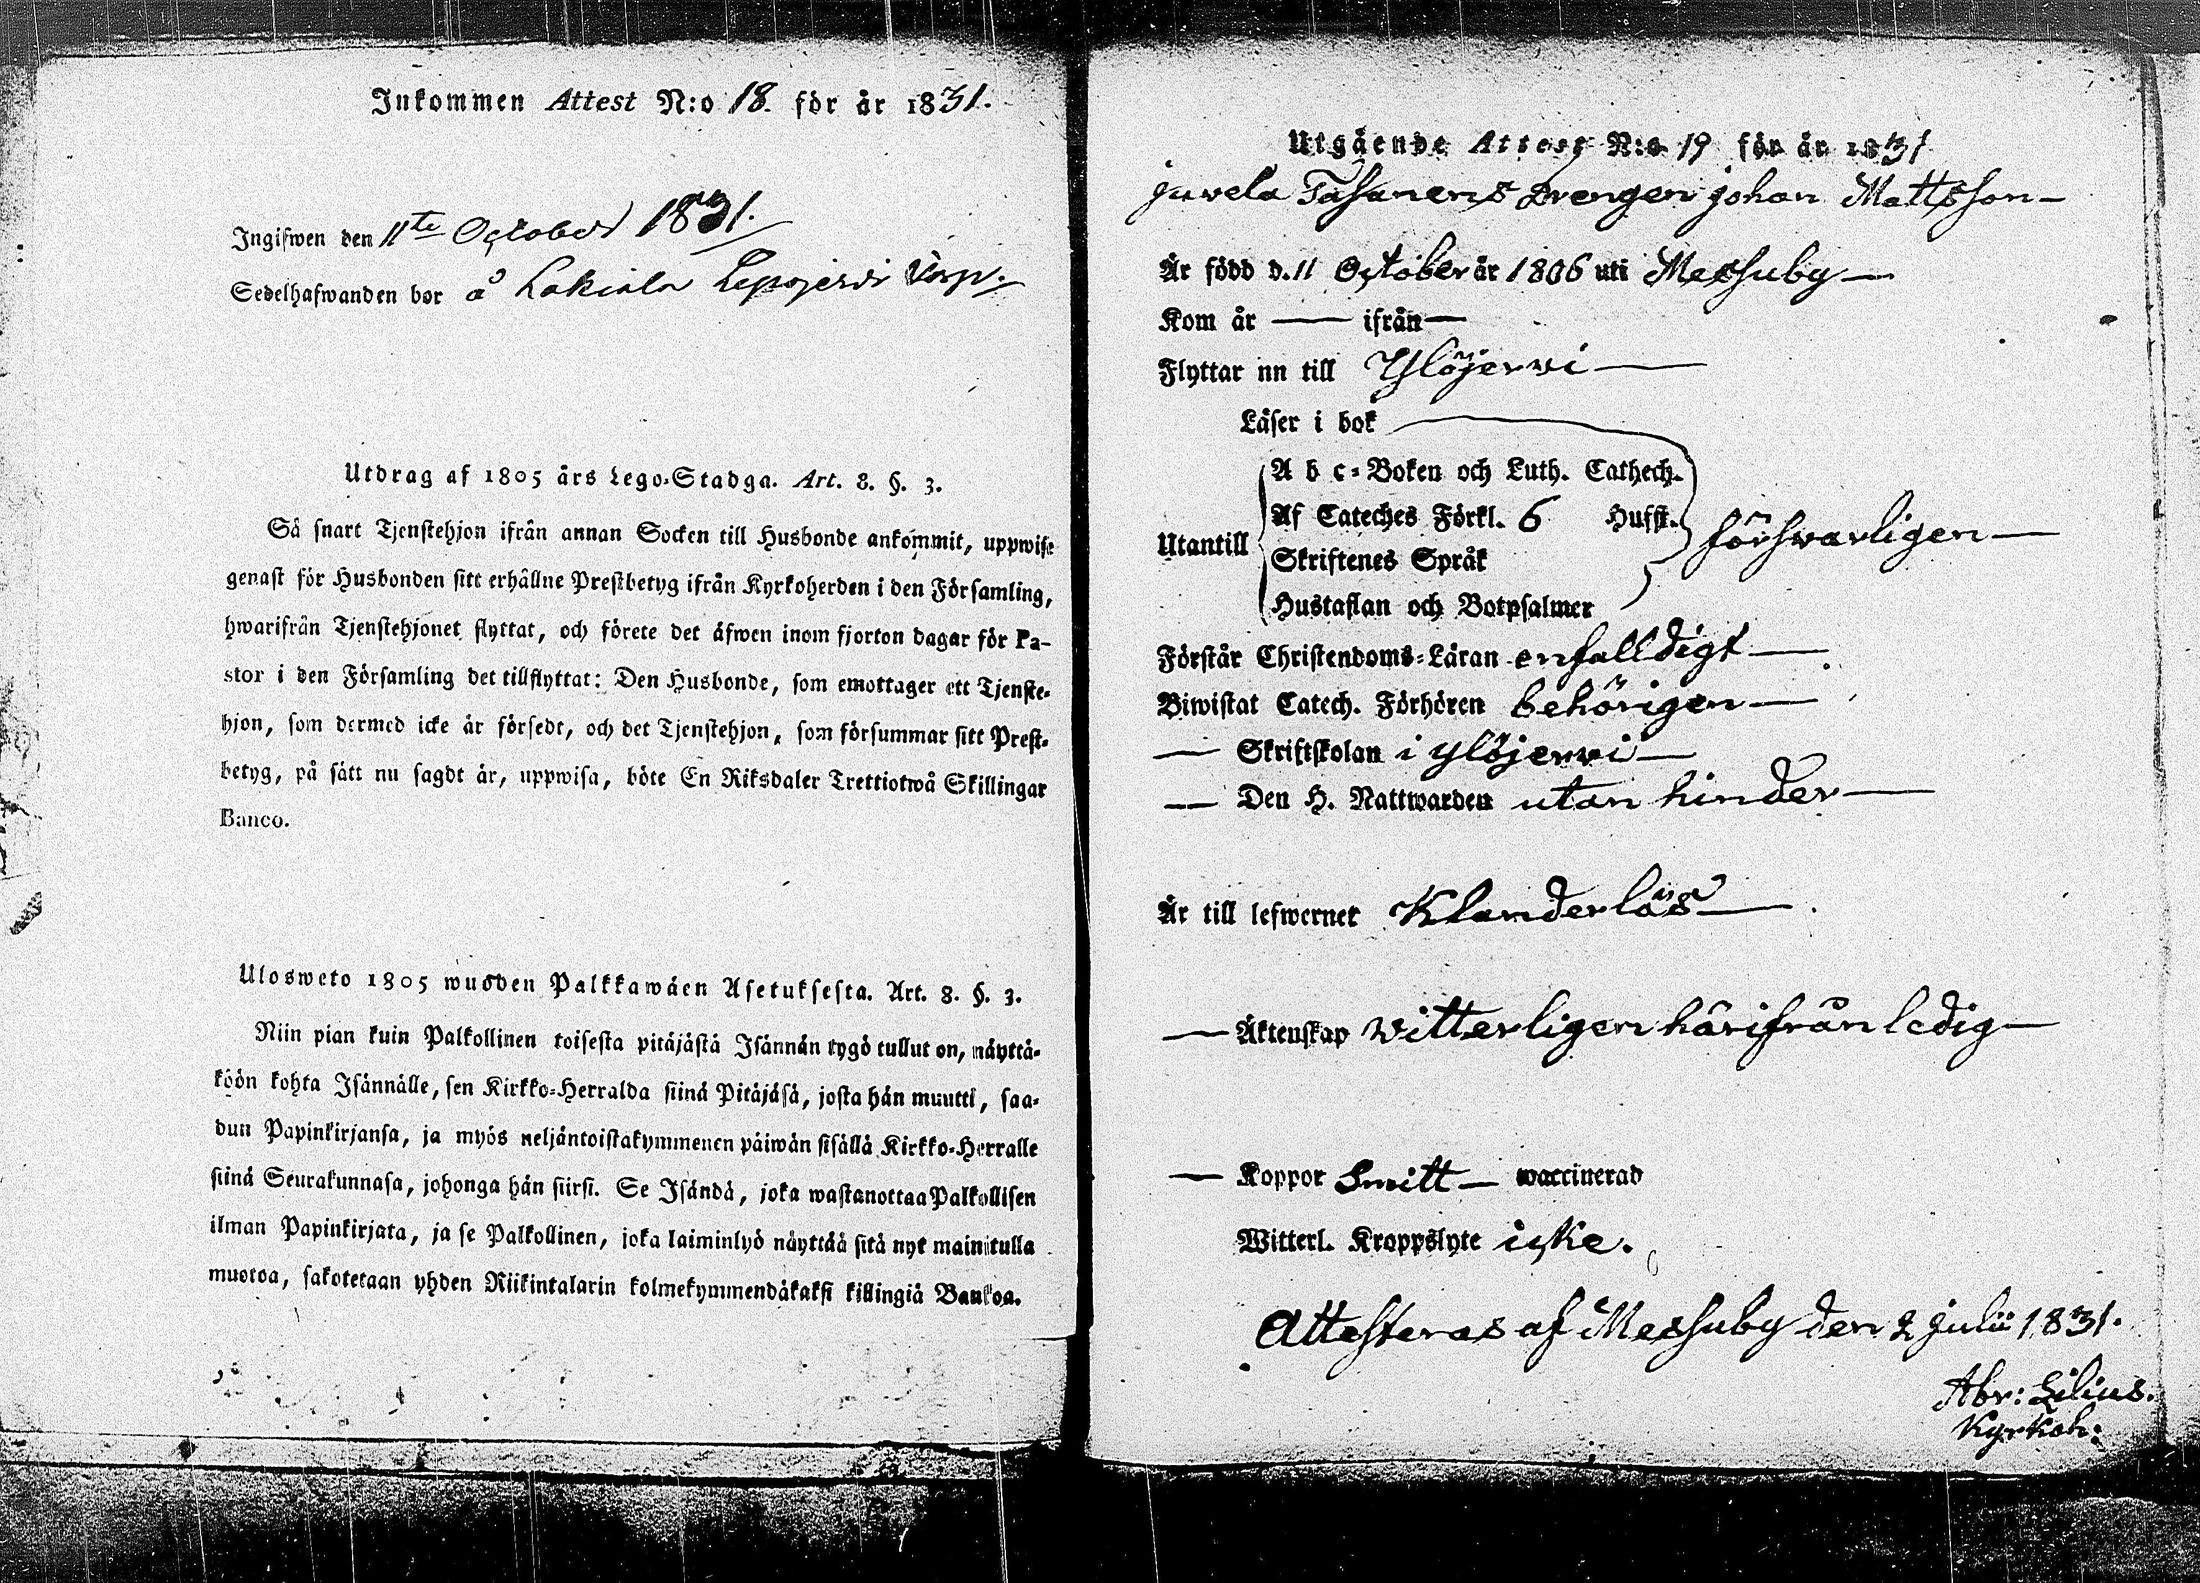 Inkommen Attest N:o 18. för år 1831.
Ingifwen den 11te October 1831.
Sedelhafwanden bor å Lakiala
Utdrag af 1805 års Lego-Stadga. Art. 8. §. 3.
Så snart Tjenstehjon ifrån annan Socken till Husbonde ankommit, uppwise
genast för Husbonden sitt erhållne Prestbetyg ifrån Kyrkoherden i den Församling,
hwarifrån Tjenstehjonet flyttat, och förete det äfwen inom fjorton dagar för Pa-
stor i den Församling det tillflyttat: Den Husbonde, som emottager ett Tjenste-
hjon, som dermed icke är försedt, och det Tjenstehjon, som försummar sitt Prest-
betyg, på sätt nu sagdt är, uppwisa, böte En Riksdaler Trettiotwå Skillingar
Banco.
Ulosweto 1805 wuoden Palkkawäen Asetuksesta. Art. 8. §. 3.
Niin pian kuin Palkollinen toisesta pitäjästä Isännän tygö tullut on, näyttä-
köön kohta Isännälle, sen Kirkko-Herralda siinä Pitäjäsä, josta hän muutti, saa-
dun Papinkirjansa, ja myös neljäntoistakymmenen päiwän sisällä Kirkko-Herralle
siinä Seurakunnasa, johonga hän siirsi. Se Isändä, joka wastanottaa Palkollisen
ilman Papinkirjata, ja se Palkollinen, joka laiminlyö näyttää sitä nyt mainitulla
muotoa, sakotetaan yhden Riikintalarin kolmekymmendäkaksi killingiä Bankoa.
Utgående Attest N:o 19 för år 1831
juvela Tasanens Drengen johan Mattsson
Är född d. 11 October år 1806 uti Messuby
Kom år — ifrån —
Flyttar nu till Ylöjerwi
Läser i bok
A b c-Boken och Luth. Cathech.
Af Cateches Förkl. 6 Hufst. försvarligen
Utantill
Skriftenes Språk
Hustaflan och Botpsalmer
Förstår Christendoms-Läran enfalldigt
Biwistat Catech. Förhören behörigen
— Skriftskolan i ylöjerwi
— Den H. Nattwarden utan hinder
Är till lefwernet Klanderlös
— Äktenskap witterligen härifrån ledig
— Koppor Smitt — waccinerad
Witterl. Kroppslyte icke.
Attesteras af Messuby den 2 julii 1831.
Abr: Lilius.
Kyrkoh: